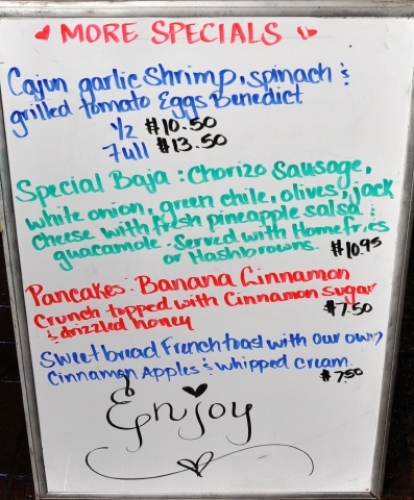 MORE SPECIALS
Cajun garlic Shrimp, spinach &
grilled tomato Eggs Benedict
1/2 $10.50
Full $13.50
Special Baja: Chorizo Sausage,
white onion, green chile, olives, jack
cheese with fresh pineapple salsa &
guacamole. Served with Homefries
or Hashbrowns. $10.95
Pancakes: Banana Cinnamon
Crunch topped with Cinnamon sugar
& drizzled honey $7.50
Sweetbread Frenchtoast with our own
Cinnamon Apples & whipped cream.
$7.50
Enjoy